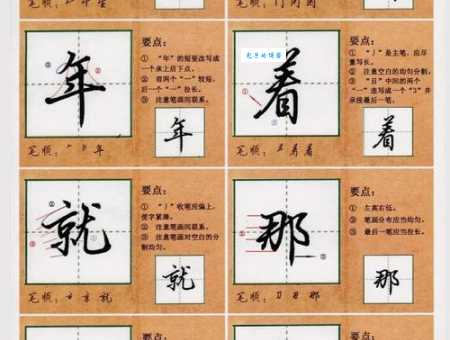 笔顺:
笔顺:
年
要点:
① “年”的短竖改写成
一个承上启下点。
② 前两个“一”较短,
后一个“一”拉长。
③ 注意笔画间联系。
年
笔顺: 年
着
要点:
① “丿”是主笔,应尽
量写长。
② 注意空白的均匀分割。
③ “目”中间的两个
“一”连写成一个“3”并
承接最后一笔。
着
笔顺: 着
就
要点:
收笔应偏上,
使字紧凑。
② 注意笔画间联系。
③ 注意笔画对空白的分
割均匀。
就
笔顺: 就
那
要点:
① 左高右低。
② 笔画分布应当均匀。
③ 最后一笔应当拉长。
那
笔顺: 那
要点:
要点: